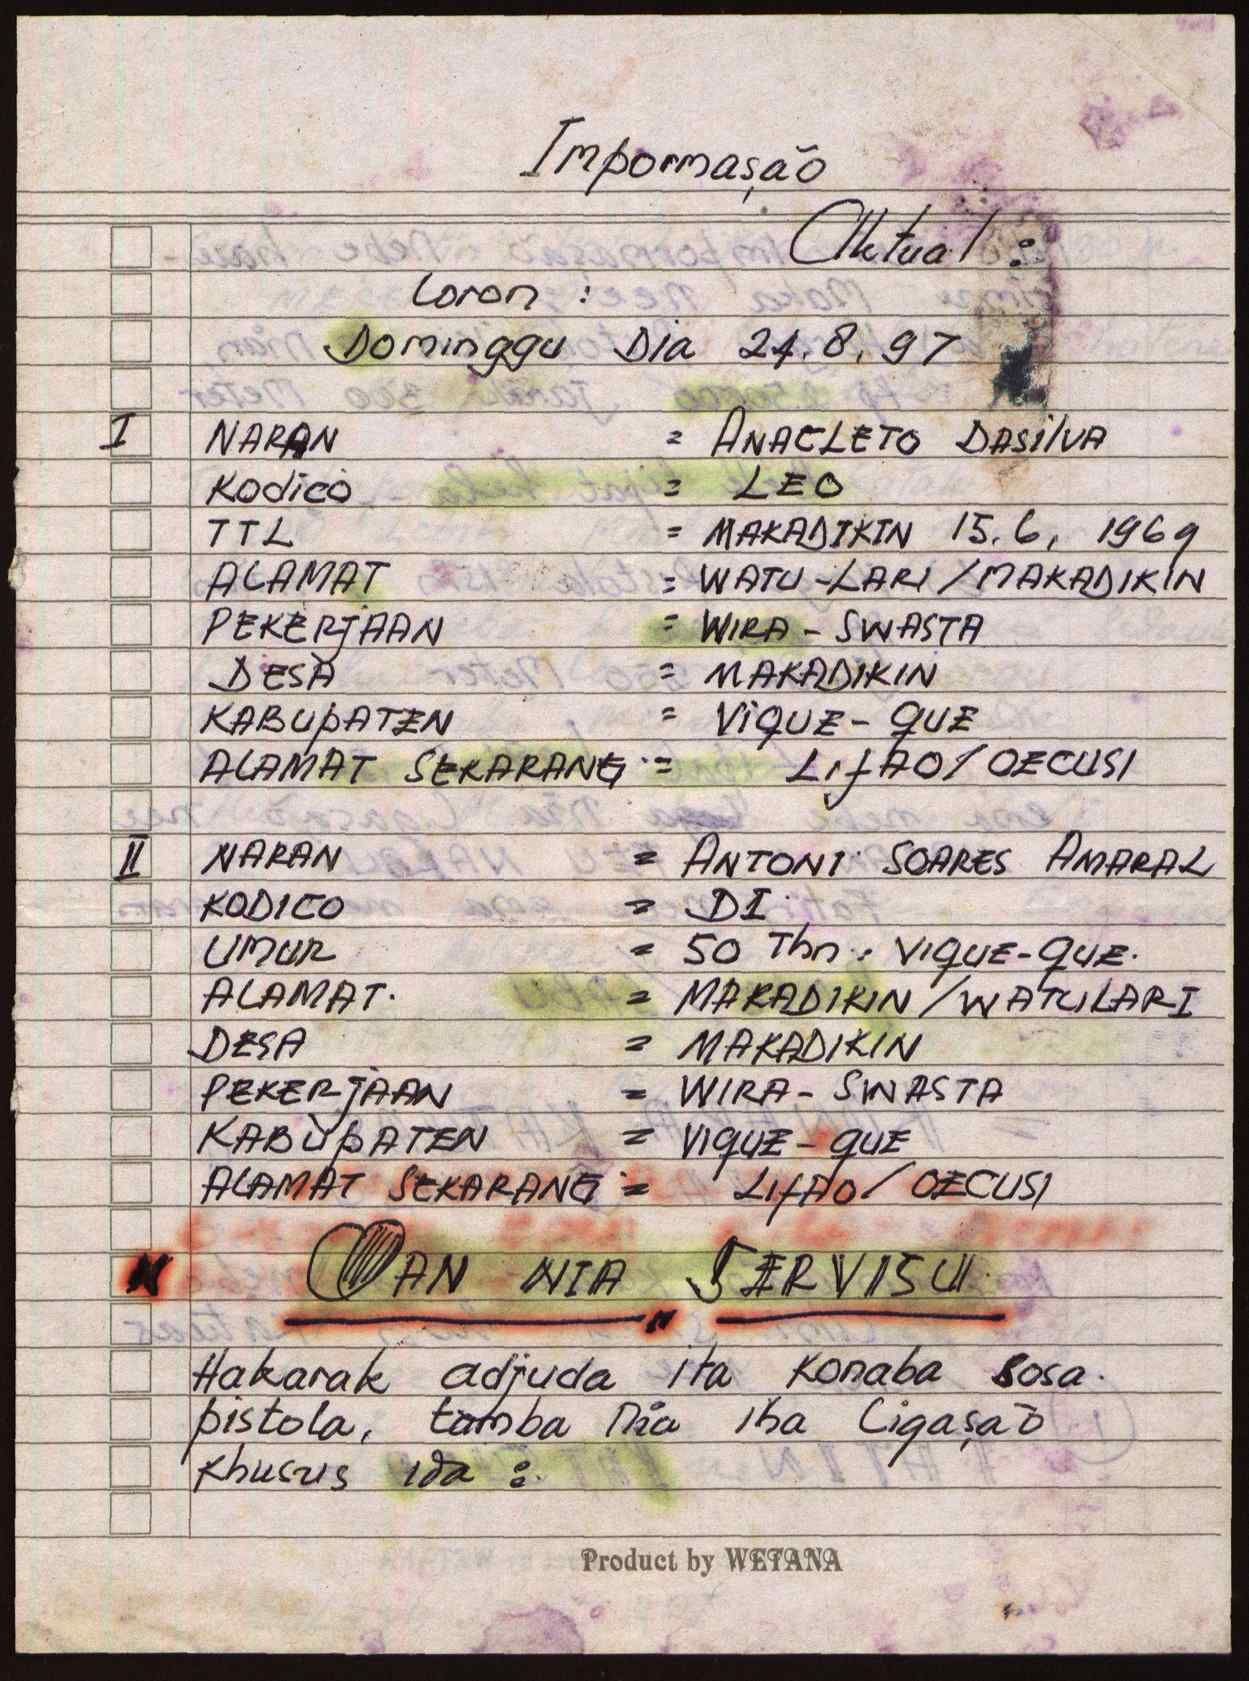 Impormasão
Aktual :
Loron :
Dominggu Dia 24.8.97
I NARAN = ANACLETO DASilVA
Kodico = LEO
TTL = MAKADIKIN 15.6, 1969
ALAMAT = WATU-LARI/MAKADIKIN
PEKERJAAN = WIRA-SWASTA
DESA = MAKADIKIN
KABUpATEN = ViQUE-QUE
ALAMAT SEKARANG = LifAO/OECUSI
II NARAN = ANTONI SOARES AMARAL
KODICO = DI
UMUR = 50 Thn. VIQUE-QUE.
ALAMAT. = MAKADIKIN/WATULARI
DESA = MAKADIKIN
PEKERJAAN = WIRA-SWASTA
KABUpATEN = VIQUE-QUE
ALAMAT SEKARANG = LIfAO/OECUSI
AN NIA SERVISU
Hakarak adjuda ita Konaba sosa.
pistola, tamba Nia iha Ligasaõ
Khusus ida :
Product by WETANA